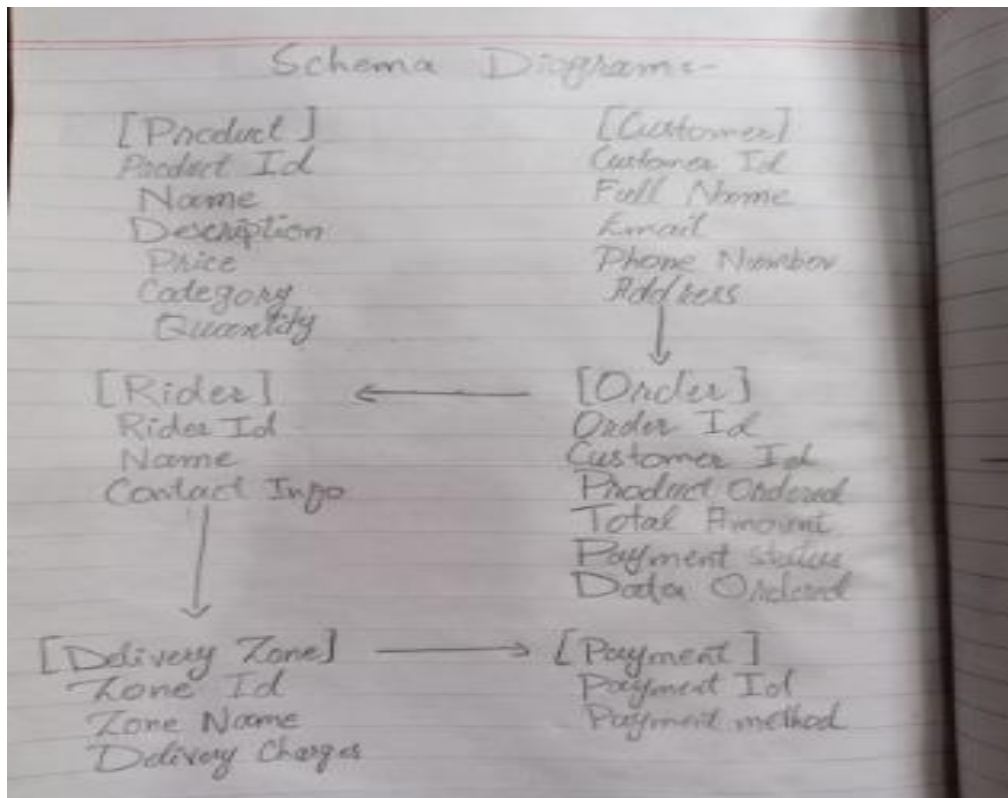 Schema Diagram:-
[Product]
Product Id
Name
Description
Price
Category
Quantity
[Customer]
Customer Id
Full Name
Email
Phone Number
Address
[Rider]
Rider Id
Name
Contact Info
[Order]
Order Id
Customer Id
Product Ordered
Total Amount
Payment status
Data Ordered
[Delivery Zone]
Zone Id
Zone Name
Delivery Charges
[Payment]
Payment Id
Payment method